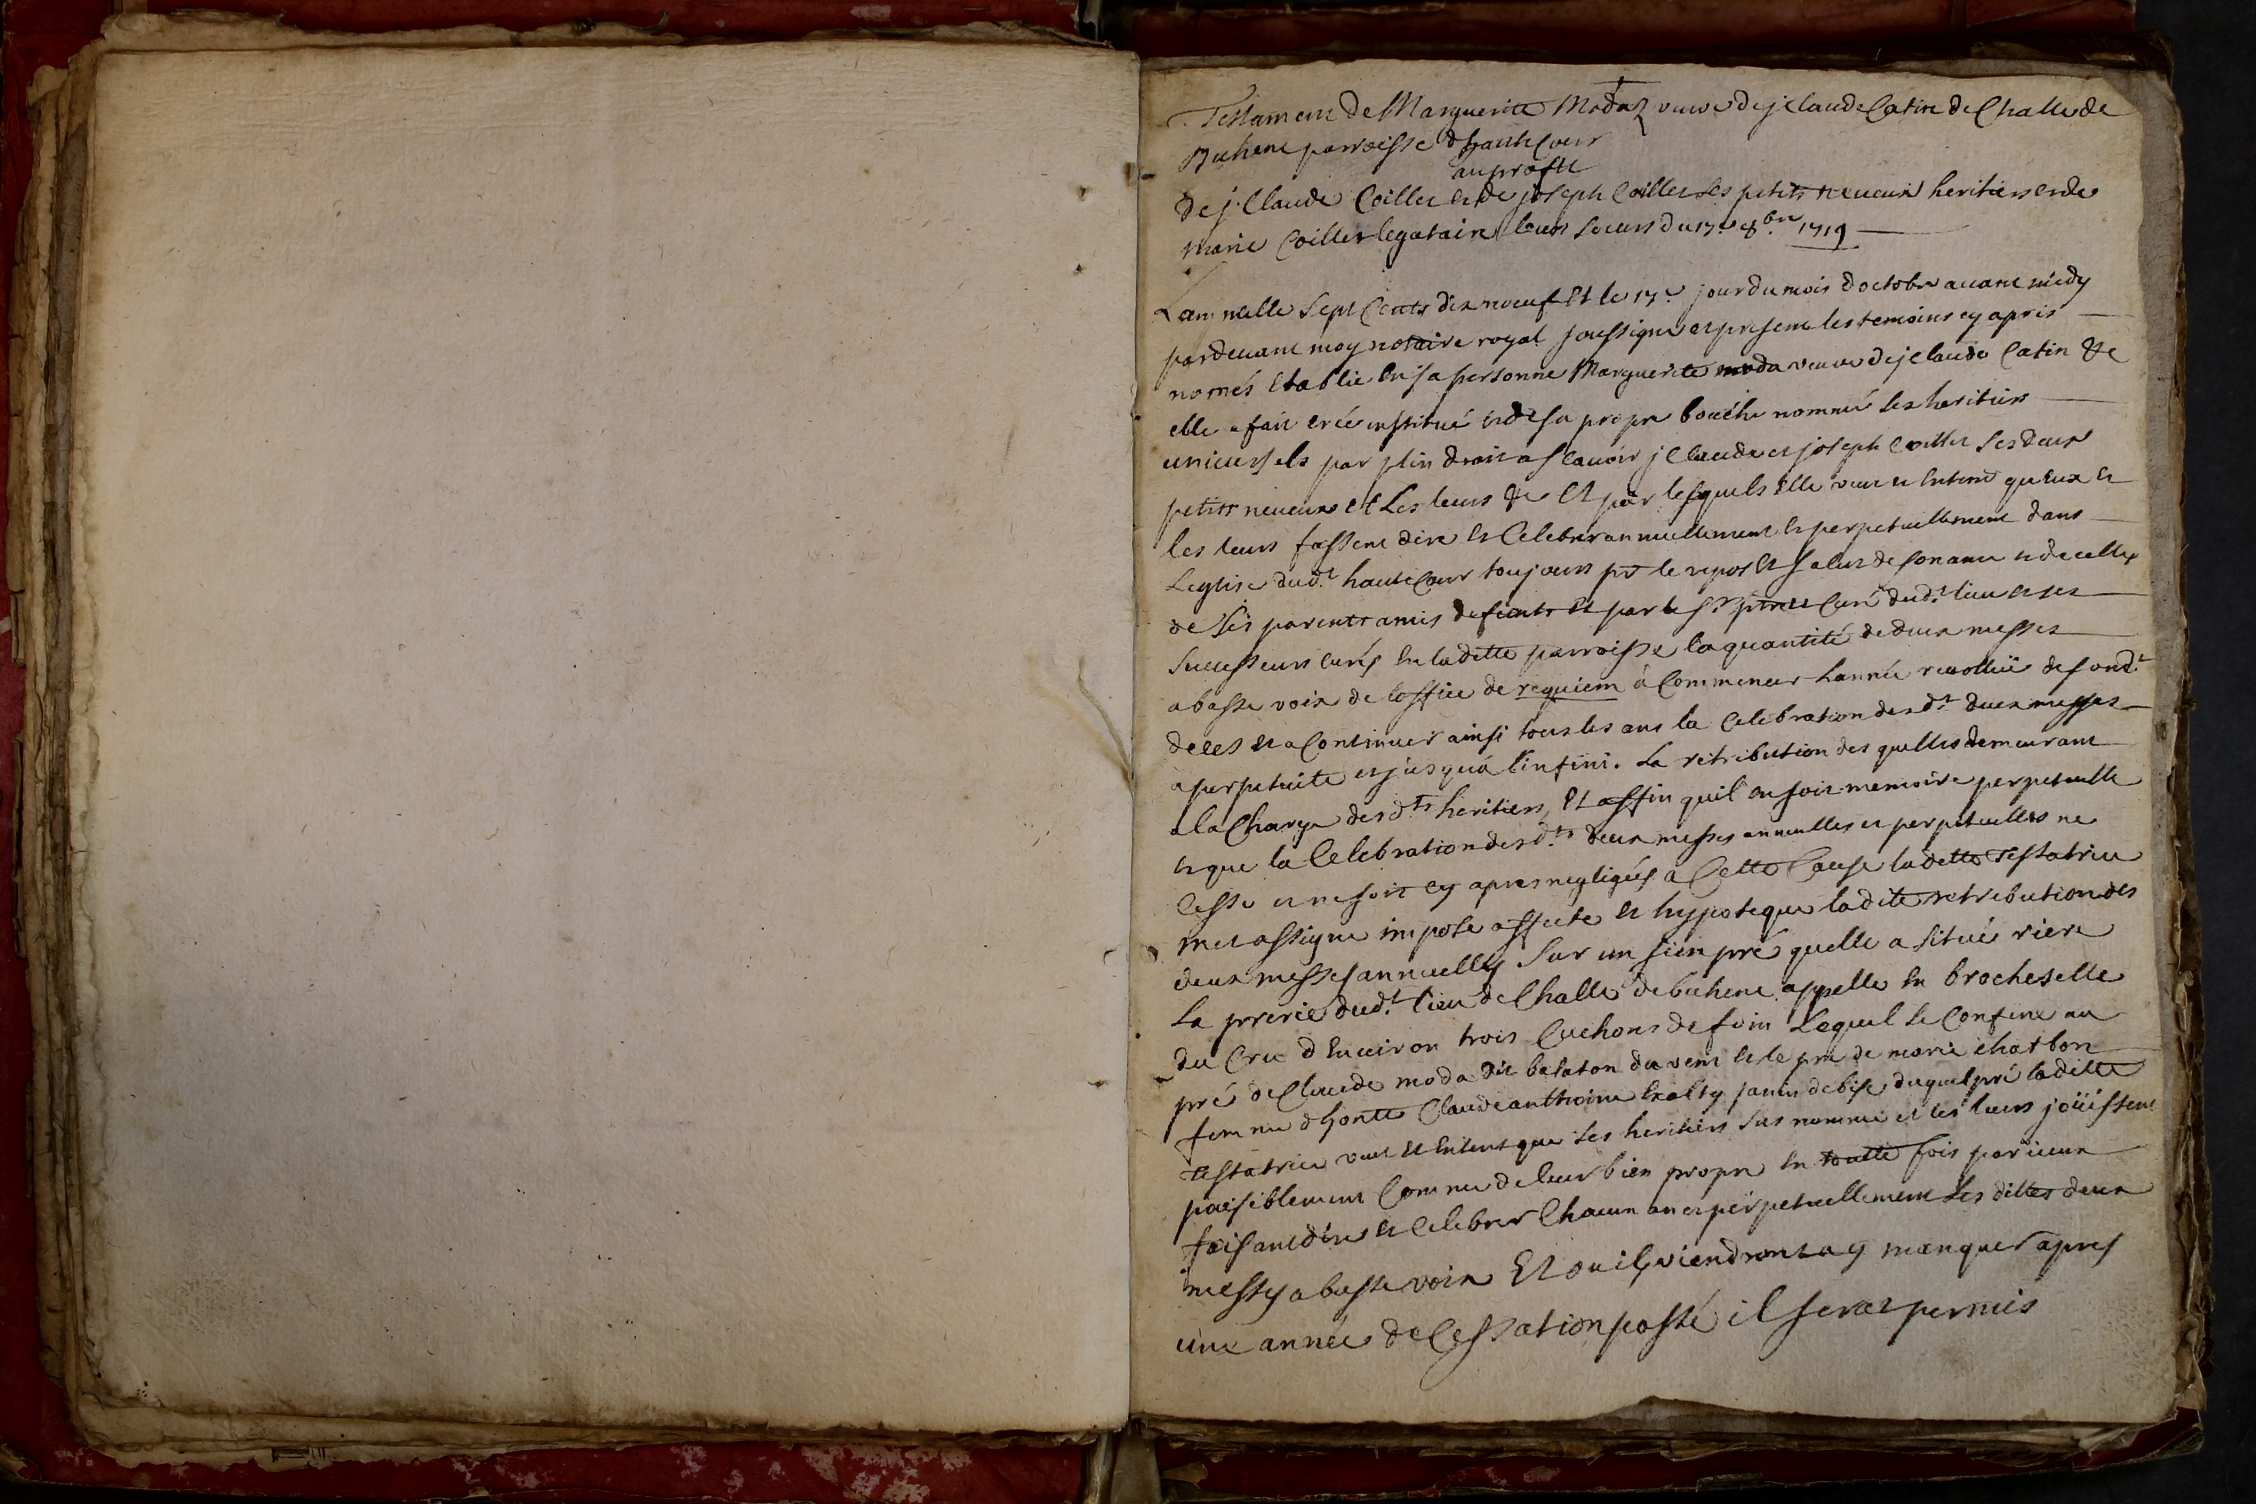 Testament de Marguerite Moda veuve de j Claude Catin de Challe de
Buhene parroisse dhautecour
au profit
de j. Claude Coiller et de joseph Coiller ses petits neueux heritiers et de
marie Coiller legataire leurs soeurs du 17e 8bre 1719
Lan mille Sept Cents dix noeuf Et le 17e jour du mois doctobre auant midy
pardeuant moy notaire royal soussigné et present les temoins cy apris
només Etablie En sa personne Marguerite moda veuve de j Claude Catin &c
elle a fait creé institué et de sa propre bouche nommé ses heritiers
uniuersels par plin droit a scauoir j Claude et joseph Coiller ses deux
petits neueux et Les leurs &c Et par lesquels Elle veut et Entend queux et
les leurs fassent dire et Celebrer annuellement et perpetuellement dans
Leglise dud.t hautecour toujours pr le repos et salut de son ame et de celles
de ses parents amis defunts et par le Sr Curé dud.t lieu et ses
successeurs curés En ladette parroisse la quantité de deux messes
a basse voix de loffice de requiem à Commencer Lannée reuolluë de son d.t
deces et a Continuer ainsi tous les ans la Celebration des d.t deux messes
a perpetuité et jusquà linfini. La retribution des quelles demeurant
a la Charge des d.ts heritiers, Et affin quil en soit memoire perpetuelle
et que la Celebration des d.ts deux messes annuelles et perpetuelles ne
Cesse et ne soit cy apres negligés à Cette Cause ladette Testatrice
met assigne impose affecte et hypoteque ladite retribution des
deux messes annuelles Sur un sien pré quelle a situé riere
La prerie dud.t lieu de Challe de buhene appelle En brocheselle
du Cru dEnuiron trois Cuchons de foin Lequel se Confine au
pré de Claude moda dit balaton du vent et le pré de marie chatbon
femme dhonte Claude anthoine janin de bise duquel pré ladette
Testatrice veut et Entent que ses heritiers sus nommé et les leurs joüissent
paisiblement Comme de leur bien propre En toutte fois par iceux
faisant dire et Celebrer Chacun an et perpetuellement les dittes deux
messes a basse voix Et ou ils viendront a y manquer apres
une année de Cessation passé il serat permis